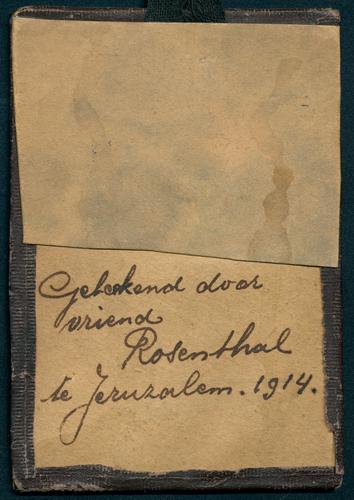 Getekend door
vriend
Rosenthal
te Jeruzalem. 1914.